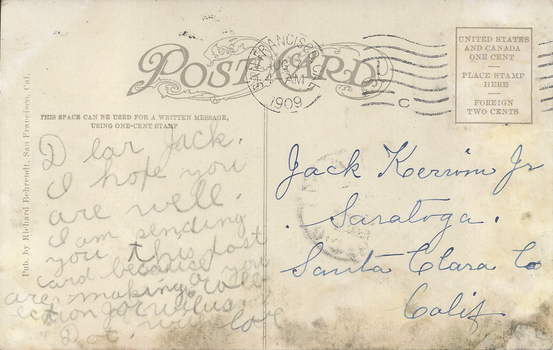 POST CARD
SAN FRANCISCO, CAL.
4 AM
1909
C
UNITED STATES
AND CANADA
ONE CENT
PLACE STAMP
HERE
FOREIGN
TWO CENTS
THIS SPACE CAN BE USED FOR A WRITTEN MESSAGE,
USING ONE-CENT STAMP
Pub. by Richard Behrendt, San Francisco, Cal.
Dear Jack.
I hope you
are well.
I am sending
you this post
card because
you
are making a coll
ection for
Dot. with love
Jack Kerrim Jr
Saratoga.
Santa Clara Co
Calif